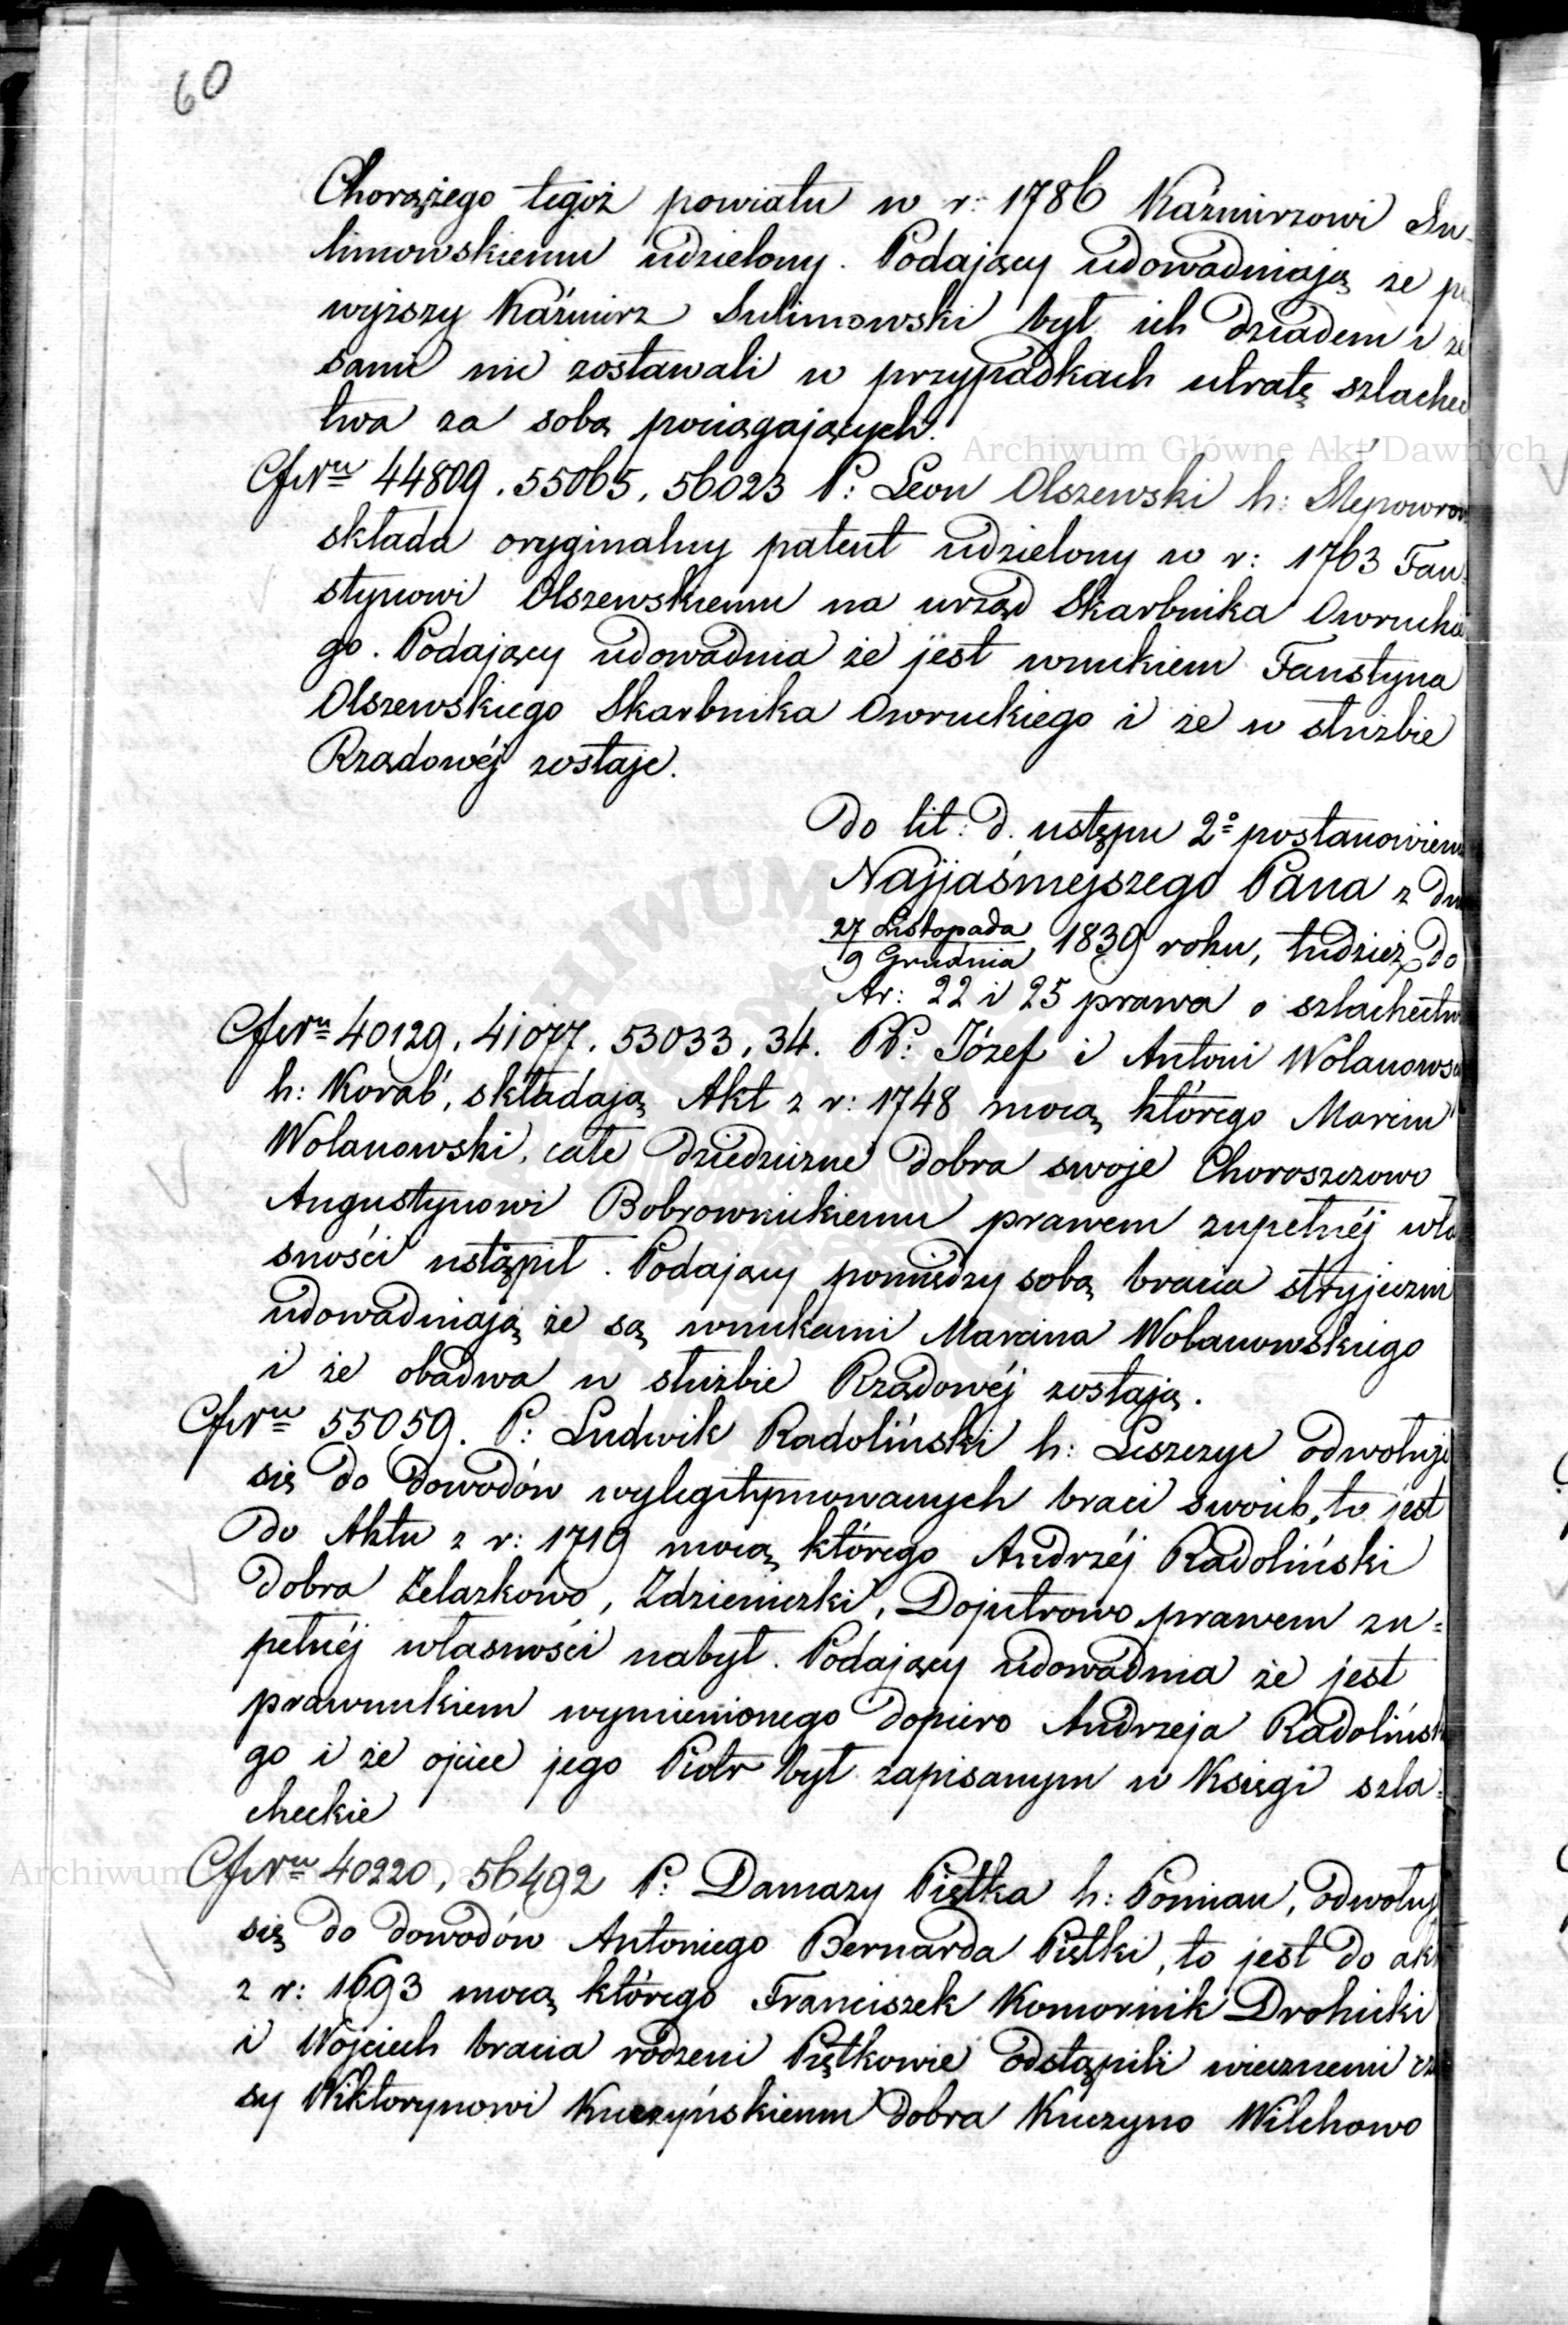 60
Chorążego tegóż powiatu w r: 1786 Kaźmirzowi Su-
limowskiemu udzielony. Podający udowadniają że po
wyższy Kaźmirz Sulimowski był ich dziadem i że
sami nie zostawali w przypadkach utratę szlachec
twa za sobą pociągających.
Archiwum Główne Akt Dawnych
44809. 55065. 56023 P: Leon Olszewski h: Slepowron
składa oryginalny patent udzielony w r: 1763 Fau-
stynowi Olszewskiemu na urząd Skarbnika Owruckie
go. Podający udowadnia że jest wnukiem Faustyna
Olszewskiego Skarbnika Owruckiego i że w służbie
Rządowéj zostaje.
Do lit: d. ustępu 2º postanowieni
Najjaśniejszego Pana z dn
27 Listopada
9 Grudnia 1839 roku, tudzież do
Ar: 22 i 25 prawa o szlachectw
40129, 41077. 53033, 34. PP: Józef i Antoni Wolanowsc
h: Korab, składają Akt z r: 1748 mocą którego Marcin
Wolanowski, całe dziedziczne dobra swoje Choroszczowo
Augustynowi Bobrownickiemu prawem zupełnéj wła
sności ustąpił. Podający pomiędzy sobą bracia stryjeczni
udowadniają że są wnukami Marcina Wolanowskiego
i że obadwa w służbie Rządowéj zostają.
55059. P: Ludwik Radoliński h: Leszczyc odwołuje
się do dowodów wylegitymowanych braci swoich, to jest
do Aktu z r: 1719 mocą którego Andrzéj Radoliński
dobra Żelazkowo, Zdzieniczki, Dojutrowo prawem zu=
pełnéj własności nabył. Podający udowadnia że jest
prawnukiem wymienionego dopiero Andrzeja Radolińsk
go i że ojciec jego Piotr był zapisanym w Księgi szla=
checkie
Archiwum
40220, 56492 P: Damazy Piętka h: Pomian, odwołuj
się do dowodów Antoniego Bernarda Piętki, to jest do ak
z r: 1693 mocą którego Franciszek Komornik Drohicki
i Wojciech bracia rodzeni Piętkowie odstąpili wiecznemi cza
sy Wiktorynowi Kuczyńskiemu dobra Kuczyno Wilchowo